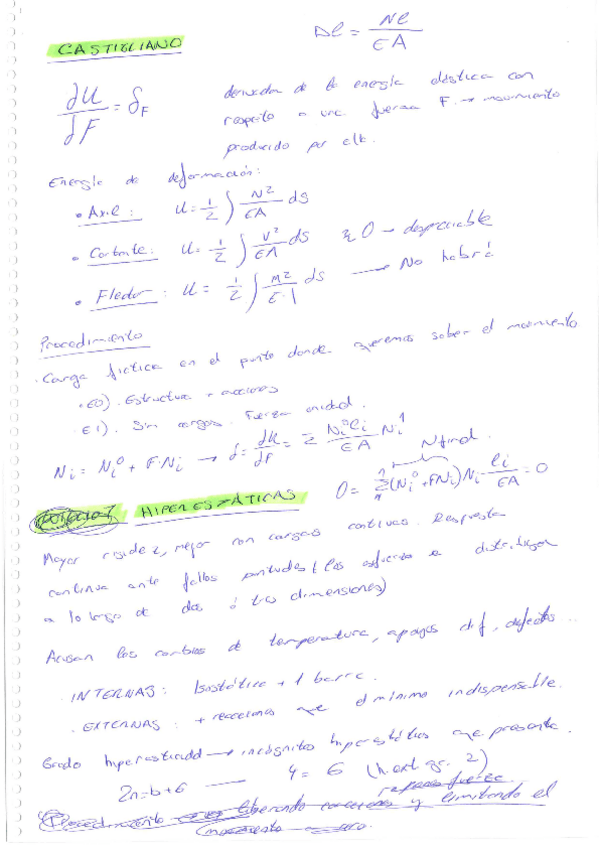 CASTIGLIANO
Δl = Nl / EA
∂U / ∂F = δF
derivada de la energía elástica con
respecto a una fuerza F. → movimiento
producido por ella.
Energía de deformación:
• Axil: U = 1/2 ∫ N² / EA ds
• Cortante: U = 1/2 ∫ V² / EA ds ≈ 0 → despreciable
• Flector: U = 1/2 ∫ M² / E·I ds → No habrá
Procedimiento
· Carga ficticia en el punto donde queremos saber el movimiento
· E0). Estructura + acciones
E1). Sin cargas. Fuerza unidad.
Ni = Ni⁰ + F·Ni → δ = dU / dF = Σ Ni⁰ li / EA Ni¹
N final.
0 = Σ (Ni⁰ + FNi) Ni li / EA = 0
HIPERESTÁTICAS
Mayor rigidez, mejor con cargas continuas. Respuesta
continua ante fallos puntuales (los esfuerzos se distribuyen
a lo largo de dos ó tres dimensiones)
Acusan los cambios de temperatura, apoyos dif, defectos...
· INTERNAS: Isostática + 1 barra.
· EXTERNAS: + reacciones que el mínimo indispensable.
Grado hiperestaticidad → incógnitas hiperestáticas que presenta.
2n = b + 6 — 4 = 6 (h. ext gr. 2)
Procedimiento liberando coacciones y limitando el
movimiento